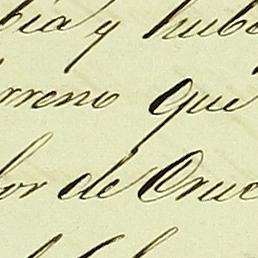 bia y hubo
rreno que
or de Cruc